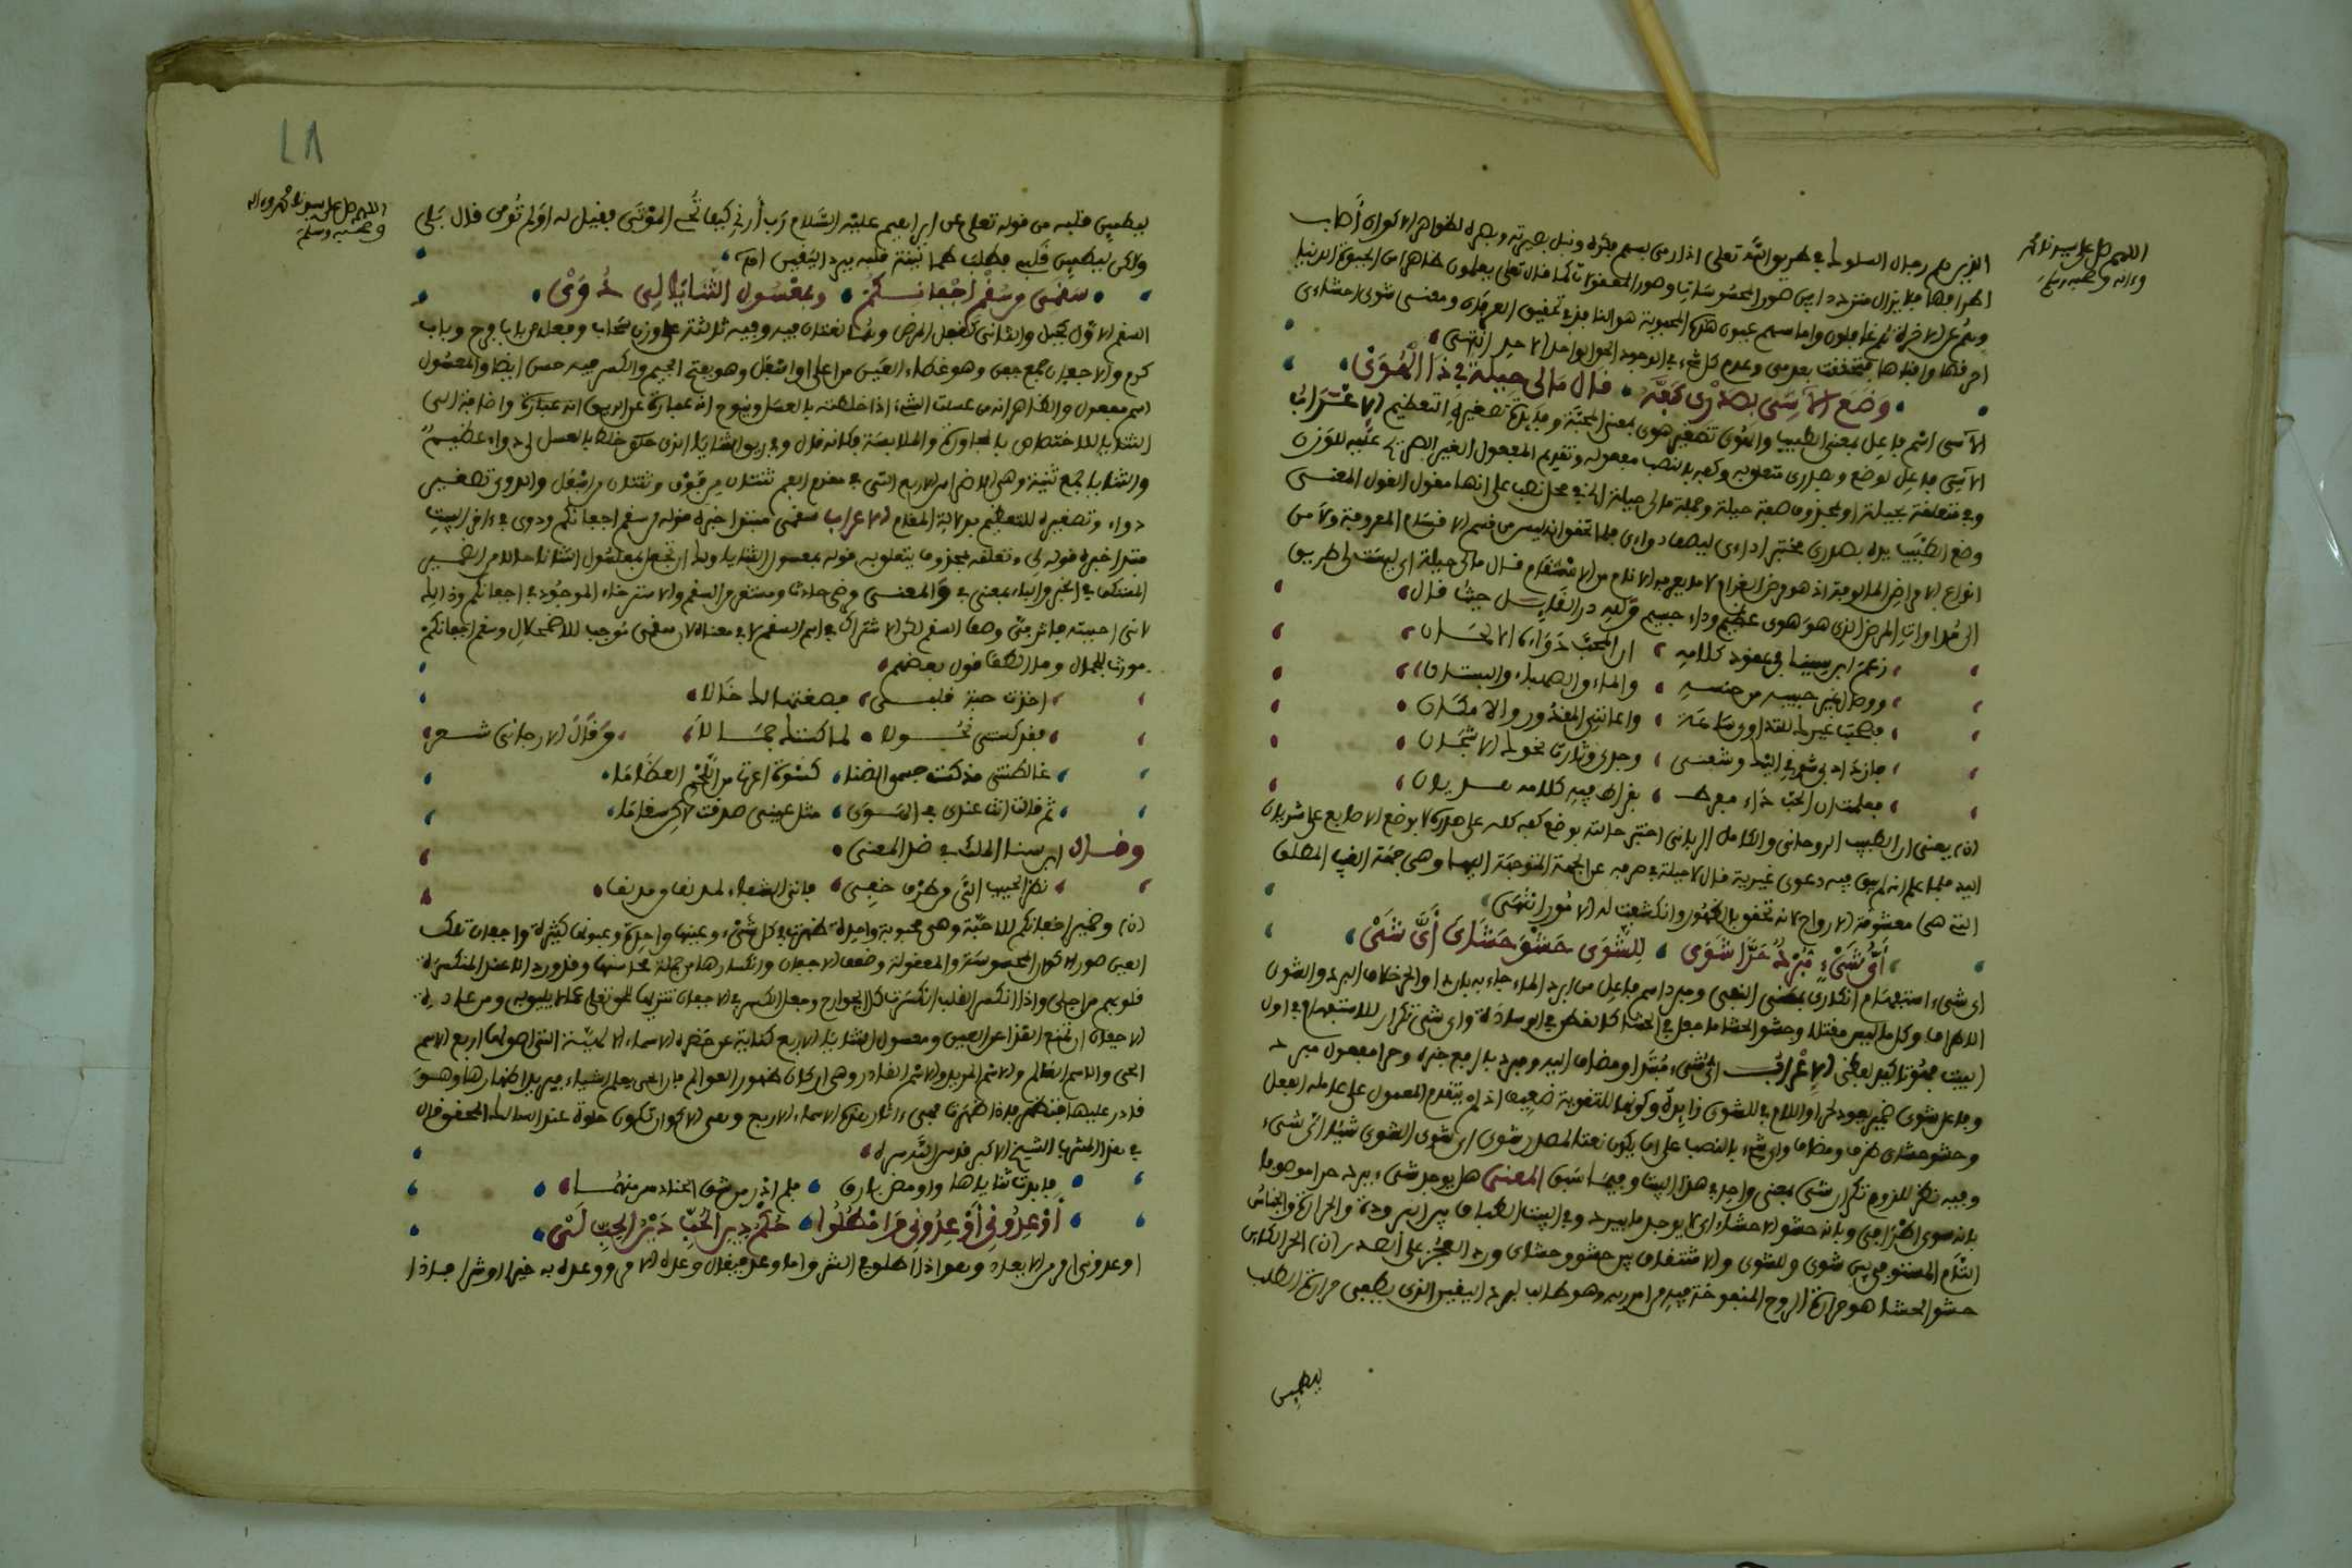 اللهم صل على سيدنا محمد
وءاله وصحبه وسلم
الذين هم رجال السلوك في طريق الله تعلى اذا رمى بسهم فكره ونبل بصيرته وبصره لظواهر الاكوان أصاب
اطرافها فلا يزال مترددا بين صور المحسوسات وصور المعقولات كما قال تعلى يعلمون ظاهرا من الحيوة الدنيا
وهم عن الاخرة هم غافلون واما سهم عيون هذه المحبوبة هو النافذ في تحقيق العرفان ومعنى شوى احشاءى
احرقها وافناها فتحققت بعدمى وعدم كل شىء في الوجود الحق الواحد الاحد انتهى
وَضَعَ الآسى بصَدْرى كَفَّهُ قال مَالى حيلة في ذا الْهُوَىْ
الآسى اسم فاعل بمعنى الطبيب والهُوَى تصغير هوى بمعنى المحبة وفايدة تصغيره التعظيم الاعْرَابُ
الآسى فاعل لوضع وبصدرى متعلق به وكفه بالنصب مفعوله وتقديم المفعول الغير الصريح عليه للوزن
وفي متعلقة بحيلة او بمحذوف صفة حيلة وجملة مالى حيلة الخ في محل نصب على انها مقول القول المعنى
وضع الطبيب يده بصدرى مختبرا داءى ليصف دواءى فلما تحقق انه ليس من قسم الاقسام المعروفة ولا من
انواع الامراض المالوفة اذ هو مرض الغرام لا ما يعرفه الانام من الاسقام قال مالى حيلة اى ليست لى طريق
الى مداوات المرض الذى هو هوى عظيم وداء جسيم ولله در القايل حيث قال
زعم ابن سينا في عقود كلامه ان المحب دواءه الالحان
ووصال غير حبيبه من جنسه والماء والصهباء والبستان
فصحبت غيرك للتداوى ساعة واعاننى المقدور والامكان
فازداد بى شوقى اليك وشفنى وجدى وثارت نحوك الاشجان
فعلمت ان الحب داء مفرط بقراط فيه كلامه هذيان
(ن) يعنى ان الطبيب الروحانى والكامل الربانى اختبر حالته بوضع كفه كله على صدره لا بوضع الاصابع على شريان
اليد فلما علم انه لم يبق فيه دعوى غيرية قال لا حيلة في صرفه عن الجهة المتوجه اليها وهى جهة الغيب المطلق
التى هى معشوقة الارواح لانه تحقق بالظهور وانكشفت له الامور انتهى
أَىُّ شَىْءٍ مُبْرِدٌ حَرًّا شَوَى لِلشَّوَى حَشْوَ حَشَاىَ أَىَّ شَىْ
اى شىء استفهام انكارى بمعنى النفى ومبرد اسم فاعل من ابرد الماء جاء به باردا والحر خلاف البرد والشوى
الاطراف وكل ما ليس مقتلا وحشو الحشا ما جعل في الحشا كالقطن في الوسادة واى شى تكرار للاستفهام في اول
البيت فهو تاكيد لفظى الاعْرَابُ اىّ شىء مُبْتَدا ومضاف اليه ومبرد بالرفع خبره وحرا مفعول مبرد
وفاعل شوى ضمير يعود لحرا واللام في للشوى زايدة وكونها للتقوية ضعيف اذ لم يتقدم المعمول على عامله الفعل
وحشو حشاى ظرف ومضاف واى شىء بالنصب على ان يكون نعتا لمصدر شوى اى شوى الشوى شيئا اى شىء
وفيه نظر للزوم تكرار شى بمعنى واحد في هذا البيت وفيما سبق المعنى هل يوجد شىء يبرد حرا موصوفا
بانه شوى اطرافى وبانه حشو الاحشاء اى لا يوجد ما يبرد وفي البيت الطباق بين البرودة والحرارة والجناسُ
التام المستوفى بين شوى وللشوى والاشتقاق بين حشو وحشاى ورد العجز على الصدر (ن) الحر الكاين
حشو الحشا هو حرارة الروح المنفوخة فيه من امر ربه وهو طالب لبرد اليقين الذى يطفى حرارة الطلب
ليطمين
٤٨
اللهم صل على سيدنا محمد وءاله
وصحبه وسلم
ليطمين قلبه من قوله تعلى عن ابراهيم عليه السَّلام رَب أرني كيف تُحي المَوْتَى فقيل له اَوَلم تُومن قال بَلى
ولاكن ليطمين قَلبي فطلب طمانينة قلبه ببرد اليقين اهـ
سقمى من سُقْمِ اجْفانكمُ وبمَعْسُول الثَّنَايَا لِى دُوَىْ
السقم الاول كجبل والثانى كقفل المرض وهُما لغتان فيه وفيه ثلاثة على وزن سحاب وفعله من باب فرح وباب
كرم والاجفان جمع جفن وهو غطاء العين من اعلى او اسفل وهو بفتح الجيم والكسر فيه حسن ايضا والمعسُول
اسم مفعول والظاهر انه من عسلت الشىء اذا خلطته بالعسل ويلوح انه عبارة عن الريق انه عبارة واضافة الى
الثنايا للاختصاص بالمجاورة والملابسة فكانه قال وبريق الثنايا الذى حلاوة خلط بالعسل لى دواء عظيمٌ
والثنايا جمع ثنية وهى الاضراس الاربع التى في مقدم الفم ثنتان من فوق وثنتان من اسفل والدوى تصغير
دواء وتصغيره للتعظيم بدلالة المقام الاعراب سقمى مبتدا خبره قوله من سقم اجفانكم ودوى في ءاخر البيت
مبتدا خبره قوله لى وتعلقه بمحذوف يتعلق به قوله بمعسول الثنايا ولك ان تجعل بمعسُول الثنايا حالا من الضمير
المستكن في الخبر والباء بمعنى في وَالمعنى
لاننى احببته فاثر منّى وصف السقم لكن الاشتراك في اسم السقم لا في معناه لان سقمى مُوجب للاضمحلال وسقم اجفانكم
مورث للجمال وما الطف قول بعضهم
اخذت حبة قلبى فصغتها لك خالا
فقد كستنى نُحولا لما كستك جمالا وقالَ الارجانى شعر
غالطتنى مذ كست جسمى الضنا كسْوة اعرت من اللحم العظاما
ثم قالت انت عندى في الهَوى مثل عينى صدقت لاكن سقاما
وقال ابن سنا الملك في ضد المعنى
نظر الحبيب الىّ من طرف خفى فاتى الشفاء لمدنف من مدنف
(ن) وضمير اجفانكم للاحبّة وهى محبوبة واحدة ظهرت في كل شىء وعينها واحدة وعيونها كثيرة واجفان تلك
العين صور الاكوان المحسوسة والمعقولة وضعف الاجفان وانكسارها من جملة محاسنها وقد ورد انا عند المنكسرة
قلوبهم من اجلى واذا انكسر القلب انكسرت كل الجوارح وجعل الكسر في الاجفان تنزيها للحق تعلى عما لا يليق به ومن عادة
الاجفان ان تمنع القذا عن العين ومعسول الثنايا الاربع كناية عن حضرة الاسماء الالهيّة التى اصولها اربع الاسم
الحى والاسم العالم والاسم المريد والاسم القادر وهى اركان ظهور العوالم فان الحى يعلم الاشياء فيريد اظهارها وهو
قادر عليها فتظهر فاذا ظهرت فهى ءاثار هذه الاسماء الاربع وهى الاكوان فتكون حلوة عند السالك المحقق قال
في هذا المشهد الشيخ الاكبر قدس الله سره
فابدت ثناياها واومض بارق فلم ادر من شق الحنادس منهما
أوْعِدُونِى أَوْ عِدُونِى وَامْطُلُوا حُكْمُ دِينِ الْحُبِّ دَيْنُ الْحِبِّ لَىْ
اوعدونى امر من الايعاد وهو اذا اطلق في الشر واما وعد فيقال وعده الامر ووعده به خيرا او شرا فاذا